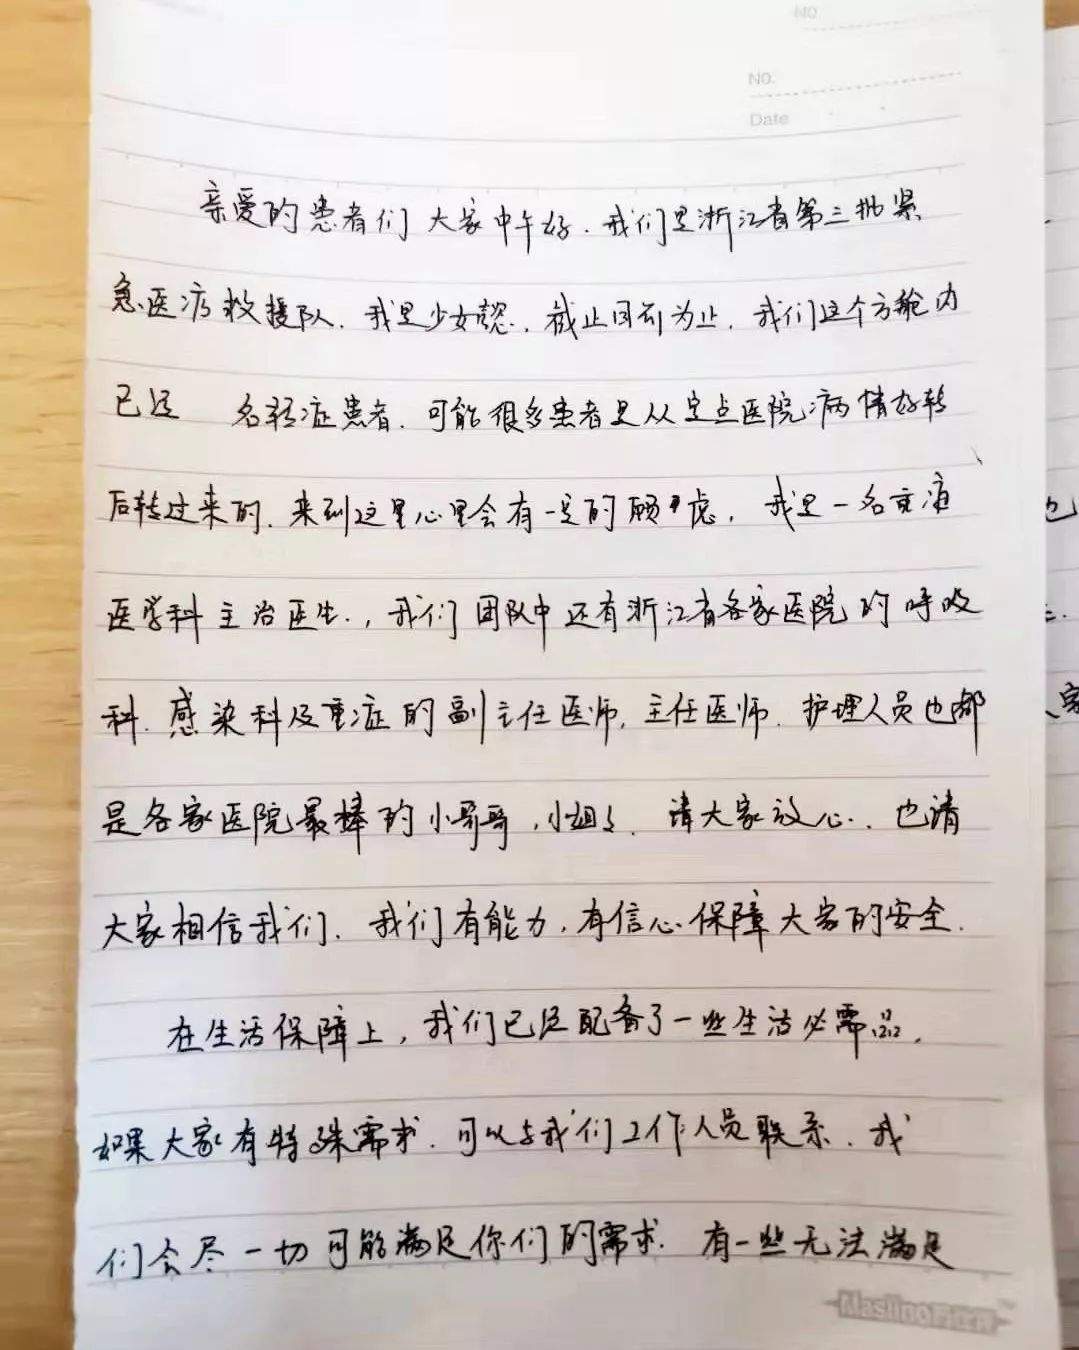 NO
NO.
Date
亲爱的患者们 大家中午好.我们是浙江省第三批紧
急医疗救援队.我是少女懿.截止目前为止.我们这个方舱内
已经 名轻症患者.可能很多患者是从定点医院病情好转
后转过来的.来到这里心里会有一定的顾虑,我是一名重症
医学科主治医生.,我们团队中还有浙江省各家医院的呼吸
科.感染科及重症的副主任医师,主任医师.护理人员也都
是各家医院最棒的小哥哥,小姐姐.请大家放心.也请
大家相信我们.我们有能力,有信心保障大家的安全.
在生活保障上,我们已经配备了一些生活必需品,
如果大家有特殊需求.可以与我们工作人员联系.我
们会尽一切可能满足你们的需求.有一些无法满足
也
家